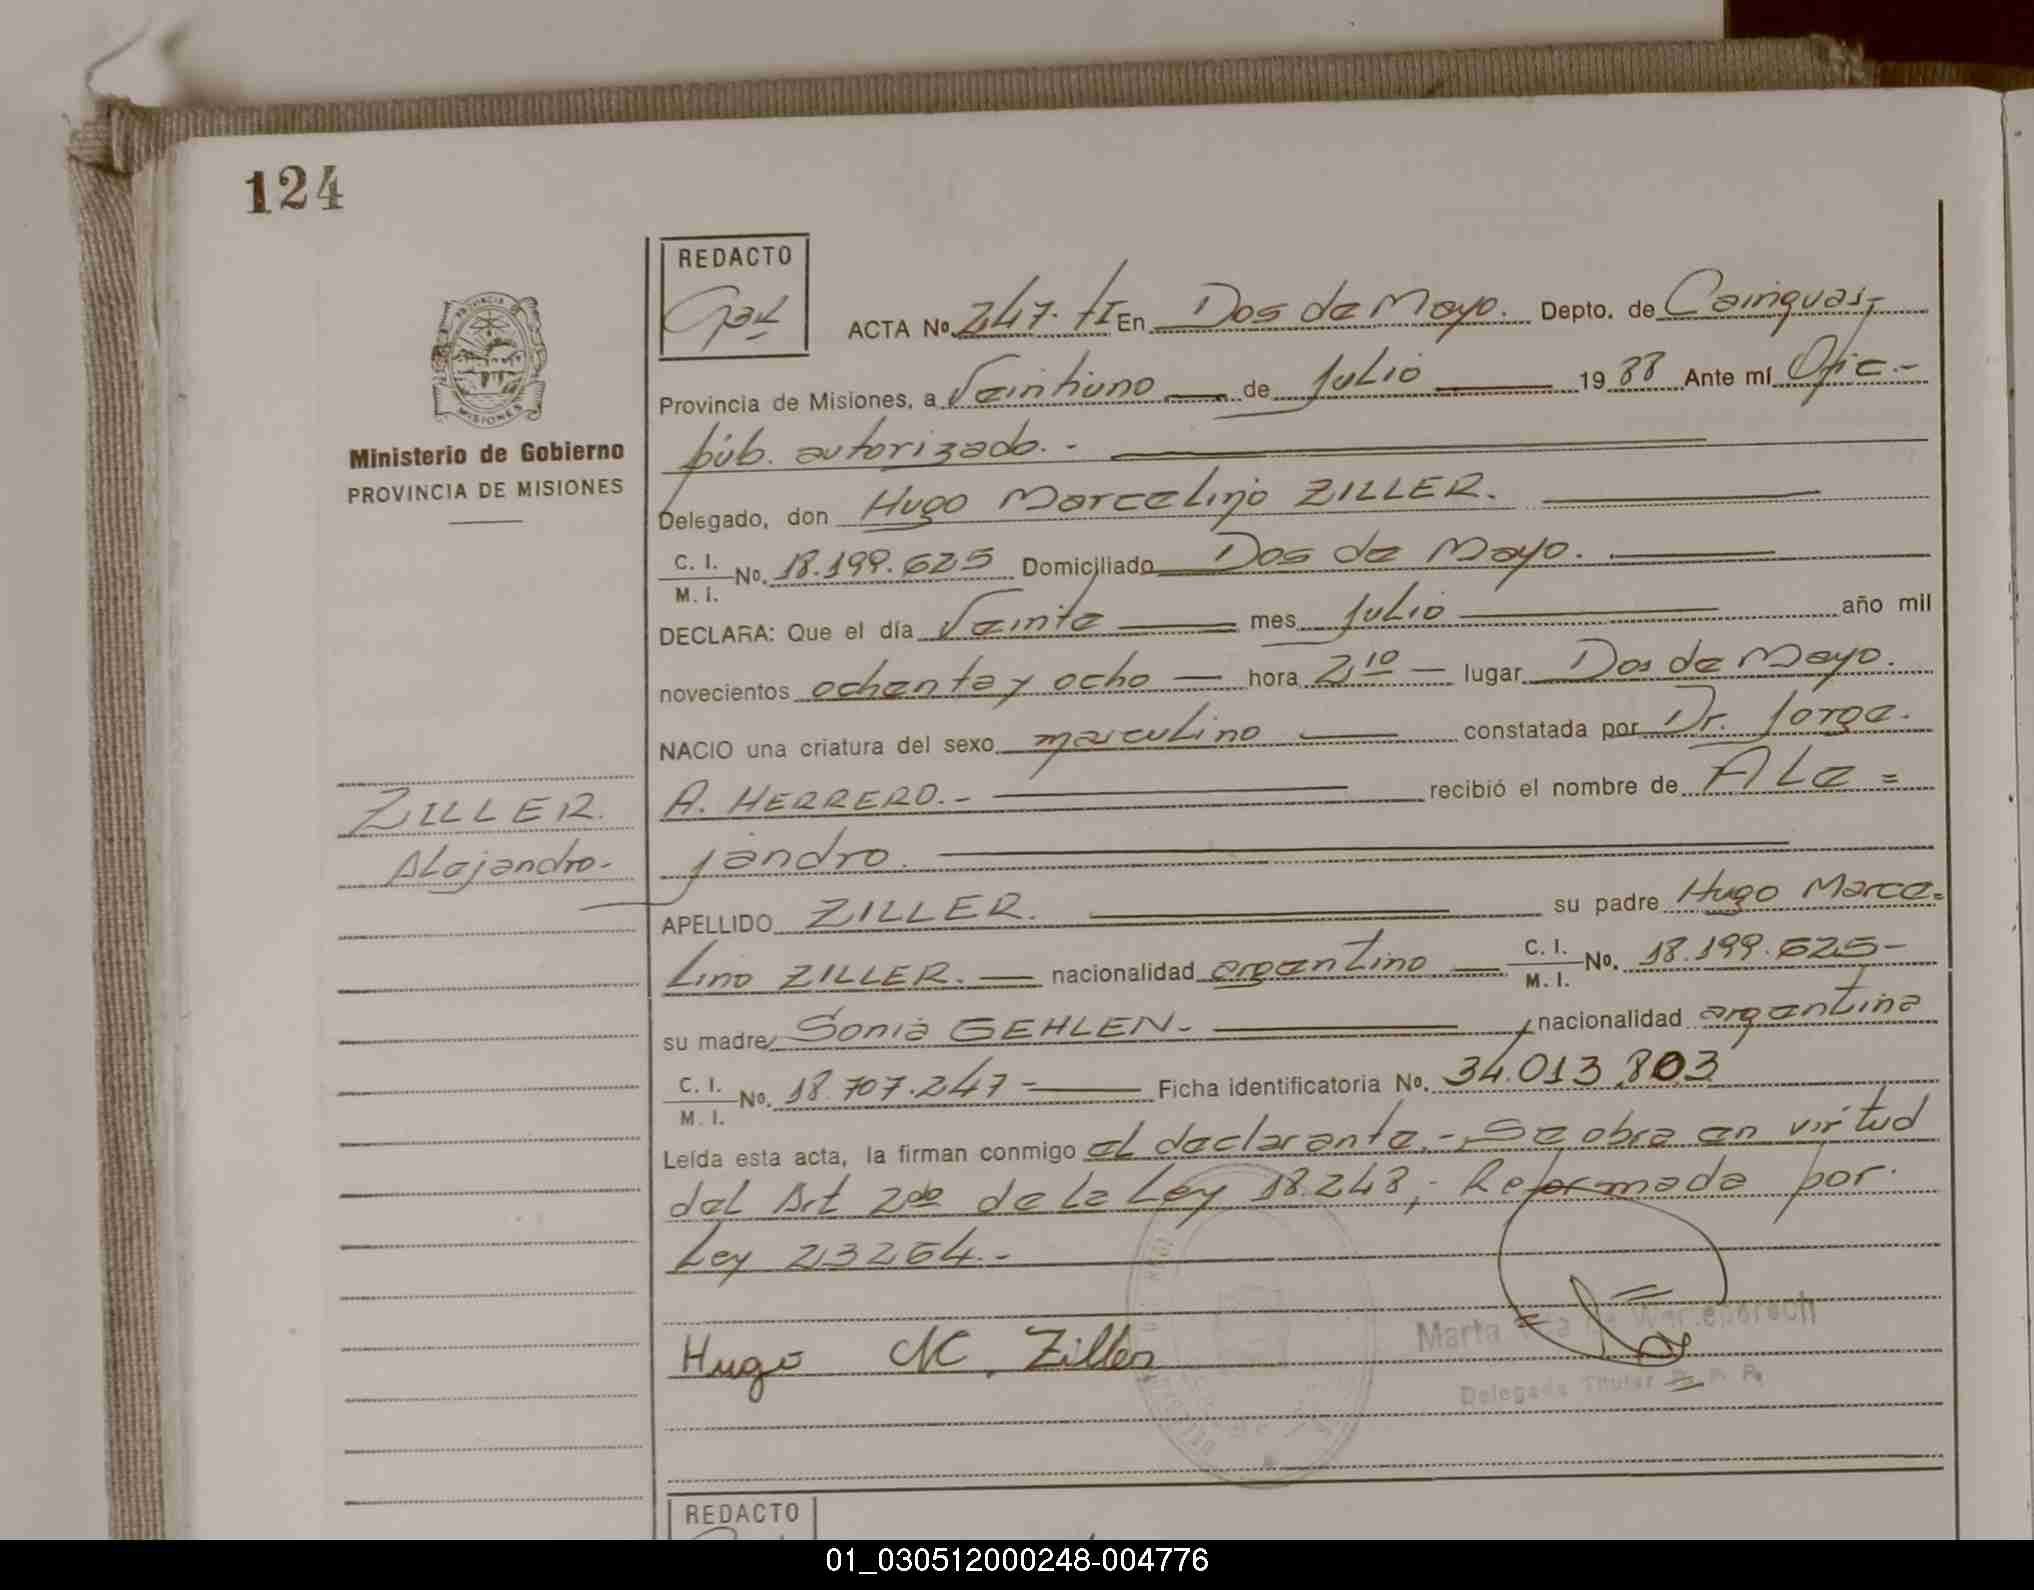 124
REDACTO
ACTA No. 247. tI En Dos de Mayo. Depto. de Cainguas,-
Provincia de Misiones, a Veintiuno de Julio 1988 Ante mí Ofic.-
púb. autorizado.-
Delegado, don Hugo Marcelino ZILLER.
C. I. / M. I. No. 18.199.625 Domiciliado Dos de Mayo.
DECLARA: Que el día Veinte mes Julio año mil
novecientos ochenta y ocho — hora 2,10 — lugar Dos de Mayo.
NACIO una criatura del sexo masculino constatada por Dr. Jorge.
A. HERRERO.- recibió el nombre de Ale=
jandro.
APELLIDO ZILLER. su padre Hugo Marce=
lino ZILLER. — nacionalidad argentino — C. I. / M. I. No. 18.199.625-
su madre Sonia GEHLEN.- nacionalidad argentina
C. I. / M. I. No. 18.707.247- Ficha identificatoria No. 34.013.803
Leída esta acta, la firman conmigo el declarante,- Se obra en virtud
del Art 2do de la Ley 18.248,- Reformada por.
Ley 23264.-
Hugo M. Ziller
Marta
Delegada Titular
REDACTO
PROVINCIA DE
MISIONES
Ministerio de Gobierno
PROVINCIA DE MISIONES
ZILLER.
Alejandro-
01_030512000248-004776